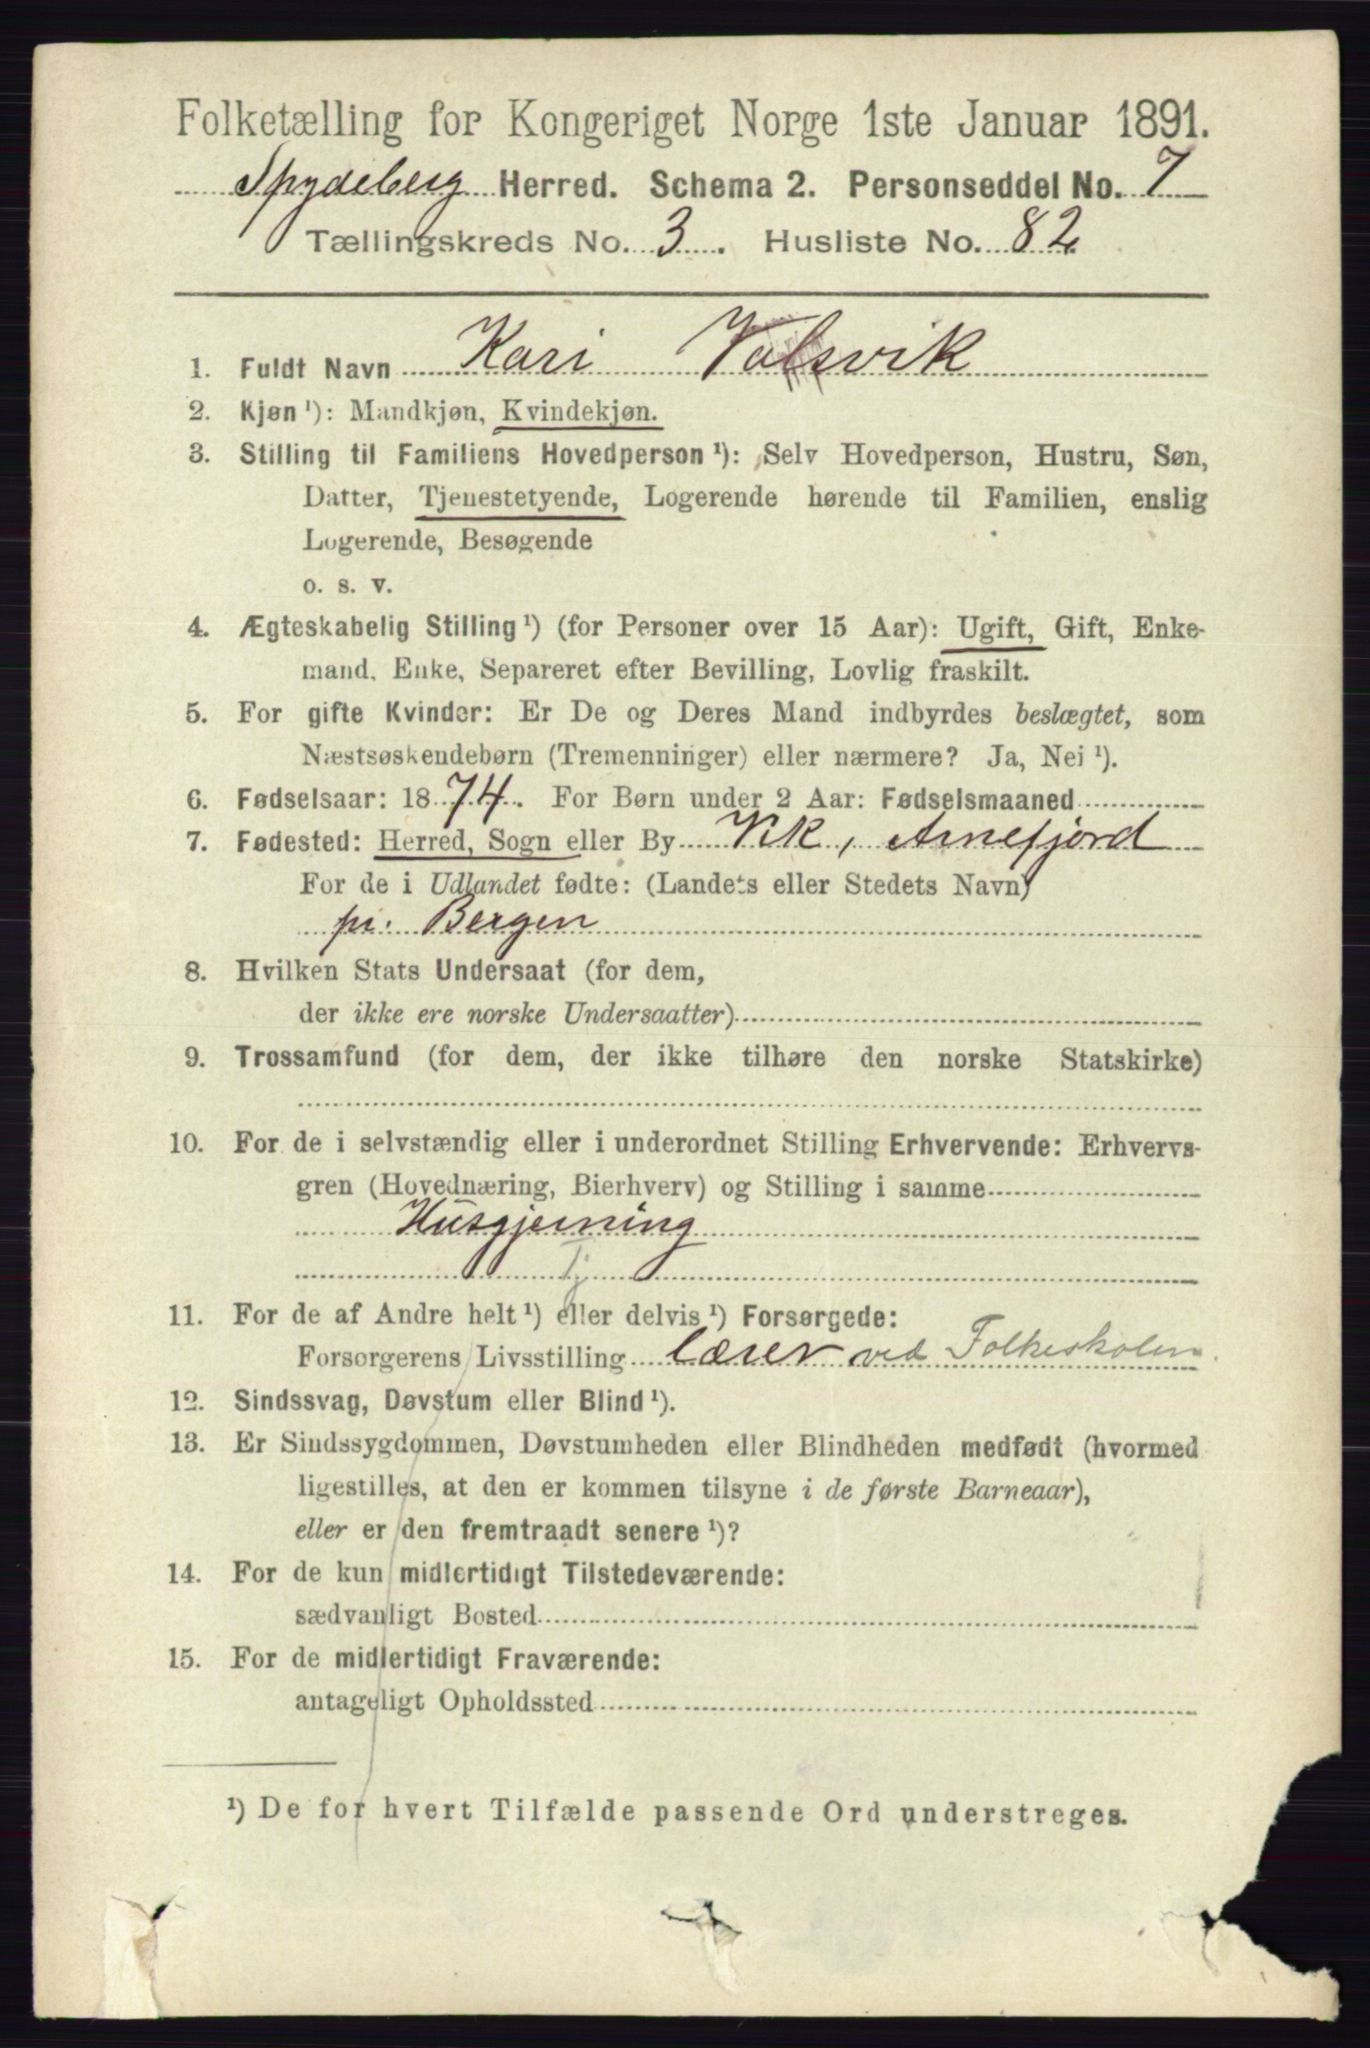 Folketælling for Kongeriget Norge 1ste Januar 1891.
Spydeberg Herred. Schema 2. Personseddel No. 7
Tællingskreds No. 3. Husliste No. 82
1. Fuldt Navn Kari Valsvik
2. Kjøn ¹): Mandkjøn, Kvindekjøn.
3. Stilling til Familiens Hovedperson ¹): Selv Hovedperson, Hustru, Søn,
Datter, Tjenestetyende, Logerende hørende til Familien, enslig
Logerende, Besøgende
o. s. v.
4. Ægteskabelig Stilling ¹) (for Personer over 15 Aar): Ugift, Gift, Enke-
mand, Enke, Separeret efter Bevilling, Lovlig fraskilt.
5. For gifte Kvinder: Er De og Deres Mand indbyrdes beslægtet, som
Næstsøskendebørn (Tremenninger) eller nærmere? Ja, Nei ¹).
6. Fødselsaar: 1874. For Børn under 2 Aar: Fødselsmaaned
7. Fødested: Herred, Sogn eller By Vik, Arnefjord
For de i Udlandet fødte: (Landets eller Stedets Navn)
pr. Bergen
8. Hvilken Stats Undersaat (for dem,
der ikke ere norske Undersaatter)
9. Trossamfund (for dem, der ikke tilhøre den norske Statskirke)
10. For de i selvstændig eller i underordnet Stilling Erhvervende: Erhvervs-
gren (Hovednæring, Bierhverv) og Stilling i samme
Husgjerning
Tj
11. For de af Andre helt ¹) eller delvis ¹) Forsørgede:
Forsørgerens Livsstilling Lærer ved Folkeskolen
12. Sindssvag, Døvstum eller Blind ¹).
13. Er Sindssygdommen, Døvstumheden eller Blindheden medfødt (hvormed
ligestilles, at den er kommen tilsyne i de første Barneaar),
eller er den fremtraadt senere ¹)?
14. For de kun midlertidigt Tilstedeværende:
sædvanligt Bosted
15. For de midlertidigt Fraværende:
antageligt Opholdssted
¹) De for hvert Tilfælde passende Ord understreges.